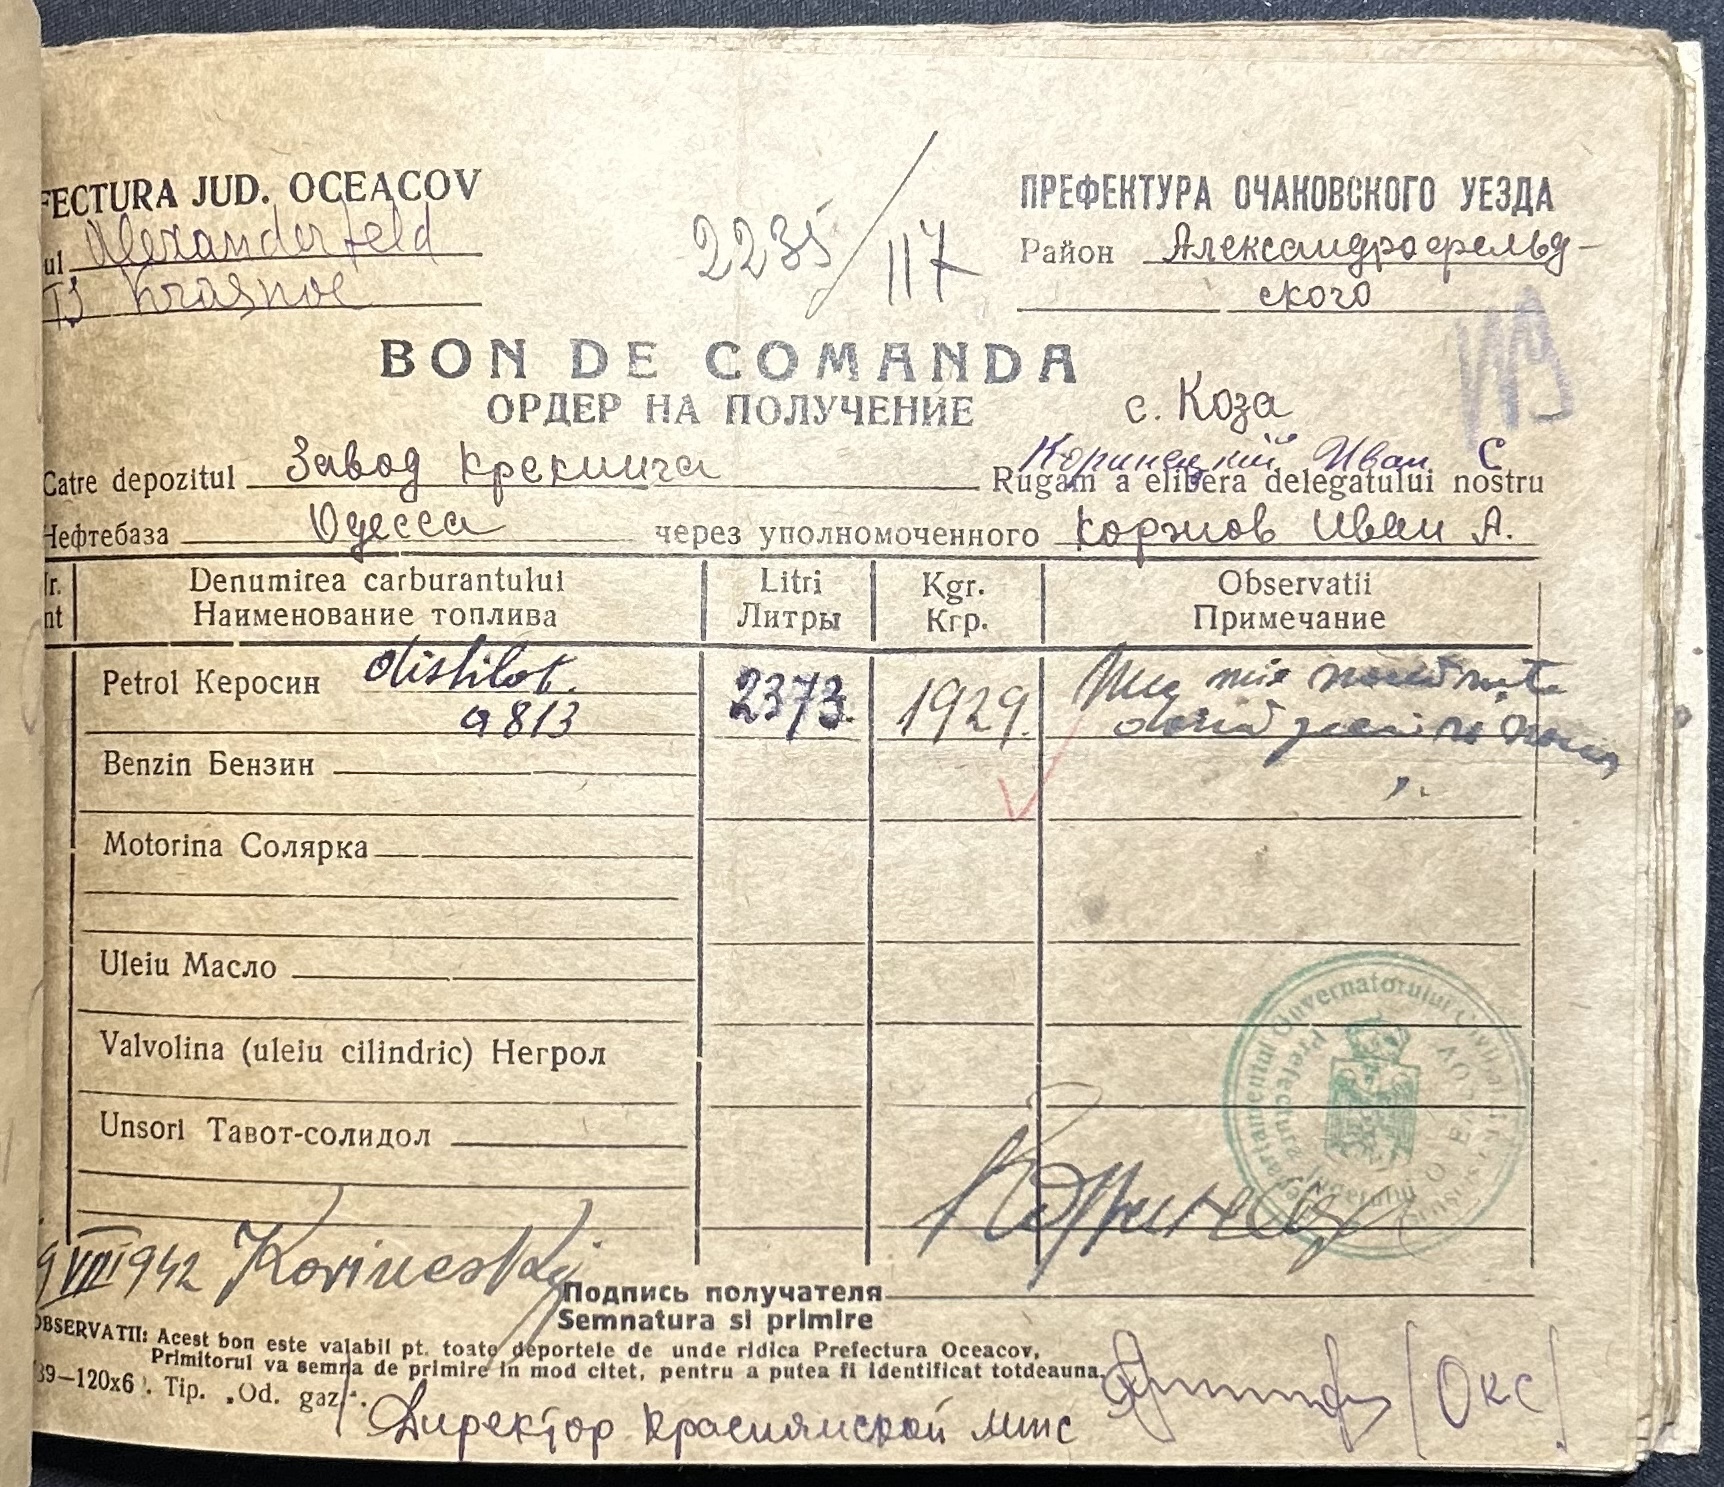 FECTURA JUD. OCEACOV
ul Alexanderfeld
TS Krasnoe
2235/117
ПРЕФЕКТУРА ОЧАКОВСКОГО УЕЗДА
Район Александрофельд-
ского
BON DE COMANDA
ОРДЕР НА ПОЛУЧЕНИЕ
с. Коза
Catre depozitul Завод крекинга
Коринецкий Иван С
Rugam a elibera delegatului nostru
Нефтебаза Одесса через уполномоченного Коржов Иван А.
r. Denumirea carburantului Litri Kgr. Observatii
nt Наименование топлива Литры Кгр. Примечание
Petrol Керосин distilat. 2373. 1929.
a 813
Benzin Бензин
Motorina Солярка
Uleiu Масло
Valvolina (uleiu cilindric) Негрол
Unsori Тавот-солидол
Guvernatorului
Prefectura Judetului
9 VIII 1942 Korinesky
Коринец
Подпись получателя
Semnatura si primire
OBSERVATII: Acest bon este valabil pt. toate deportele de unde ridica Prefectura Oceacov.
Primitorul va semna de primire in mod citet, pentru a putea fi identificat totdeauna.
39—120x6 . Tip. „Od. gaz".
Директор Краснянской мтс /Окс/